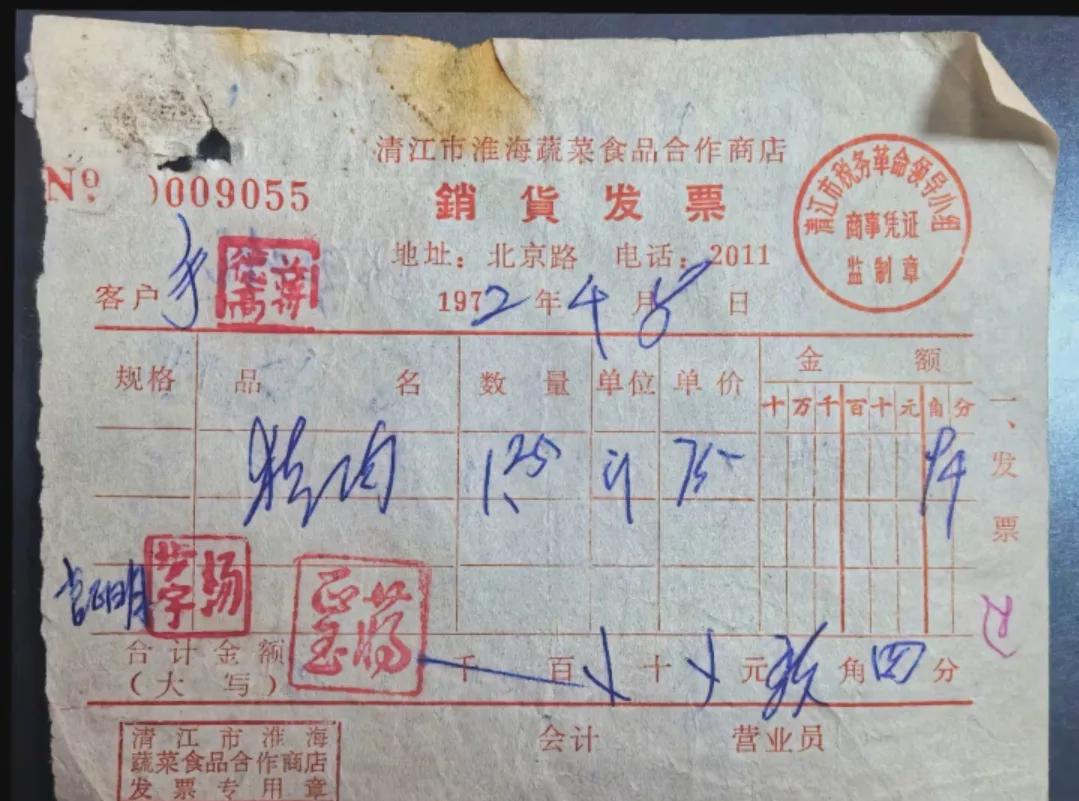 清江市淮海蔬菜食品合作商店
No 009055
銷貨发票
清江市税务革命领导小组
商事凭证
监制章
地址：北京路 电话：2011
客户
德蒋
高
1972年4月5日
规格 品名 数量 单位 单价 金额
十万千百十元角分
肉 1.25 斤 75 94
一、发票
证明
合计金额 千 百 十 元 玖角四分
（大写）
会计 营业员
清江市淮海
蔬菜食品合作商店
发票专用章